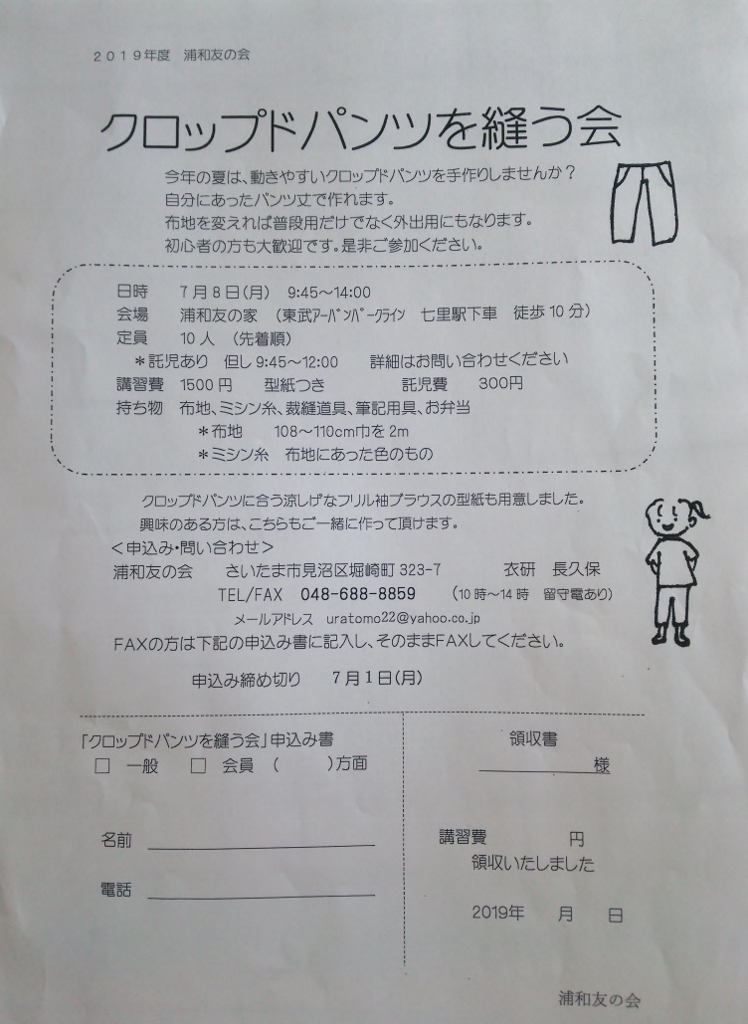 ２０１９年度　浦和友の会
クロップドパンツを縫う会
今年の夏は、動きやすいクロップドパンツを手作りしませんか？
自分にあったパンツ丈で作れます。
布地を変えれば普段用だけでなく外出用にもなります。
初心者の方も大歓迎です。是非ご参加ください。
日時　７月８日(月)　9:45～14:00
会場　浦和友の家　（東武ｱｰﾊﾞﾝﾊﾟｰｸﾗｲﾝ　七里駅下車　徒歩10分）
定員　10人　（先着順）
＊託児あり　但し9:45～12:00　　詳細はお問い合わせください
講習費　1500円　　型紙つき　　　　託児費　　300円
持ち物　布地、ミシン糸、裁縫道具、筆記用具、お弁当
＊布地　　108～110cm巾を2m
＊ミシン糸　布地にあった色のもの
クロップドパンツに合う涼しげなフリル袖ブラウスの型紙も用意しました。
興味のある方は、こちらもご一緒に作って頂けます。
＜申込み・問い合わせ＞
浦和友の会　　さいたま市見沼区堀崎町323-7　　　　衣研　長久保
TEL/FAX　048-688-8859　　（10時～14時　留守電あり）
メールアドレス　uratomo22@yahoo.co.jp
FAXの方は下記の申込み書に記入し、そのままFAXしてください。
申込み締め切り　　７月１日(月)
「クロップドパンツを縫う会」申込み書
□　一般　　□　会員　（　　　）方面
名前
電話
領収書
様
講習費　　　　　円
領収いたしました
2019年　　月　　日
浦和友の会